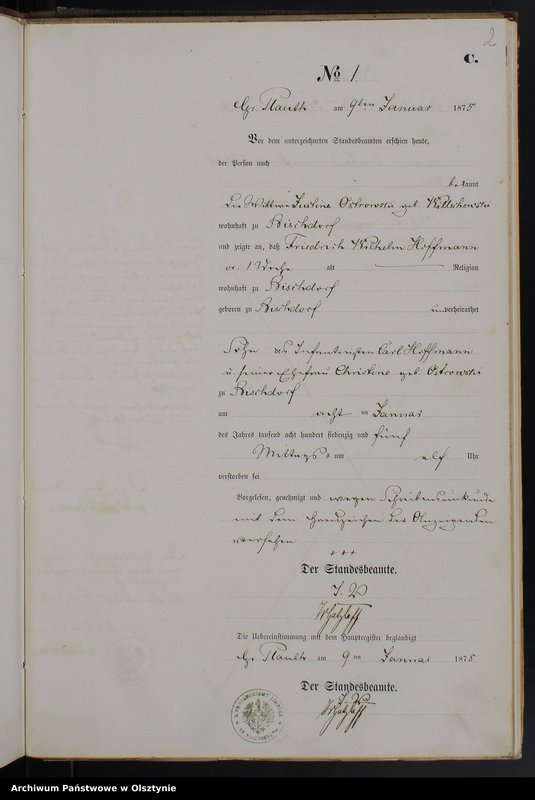 2
C.
No 1
Gr. Plauth am 9ten Januar 1875
Vor dem unterzeichneten Standesbeamten erschien heute,
der Person nach
bekannt
die Wittwe Justine Ostrowski geb.
wohnhaft zu Bischdorf
und zeigte an, daß Friedrich Wilhelm Hoffmann
1 Woche alt Religion
wohnhaft zu Bischdorf
geboren zu Bischdorf unverheirathet
Sohn des Infanteristen Carl Hoffmann
u seiner Ehefrau Christine geb. Ostrowski
zu Bischdorf
am acht ten Januar
des Jahres tausend acht hundert siebenzig und fünf
Mittags um elf Uhr
verstorben sei
Vorgelesen, genehmigt und wegen Schreibensunkunde
mit dem Handzeichen der Anzeigenden
versehen
+++
Der Standesbeamte.
J. V.
Die Uebereinstimmung mit dem Hauptregister beglaubigt
Gr. Plauth am 9 ten Januar 1875
Der Standesbeamte.
J. V.
Archiwum Państwowe w Olsztynie